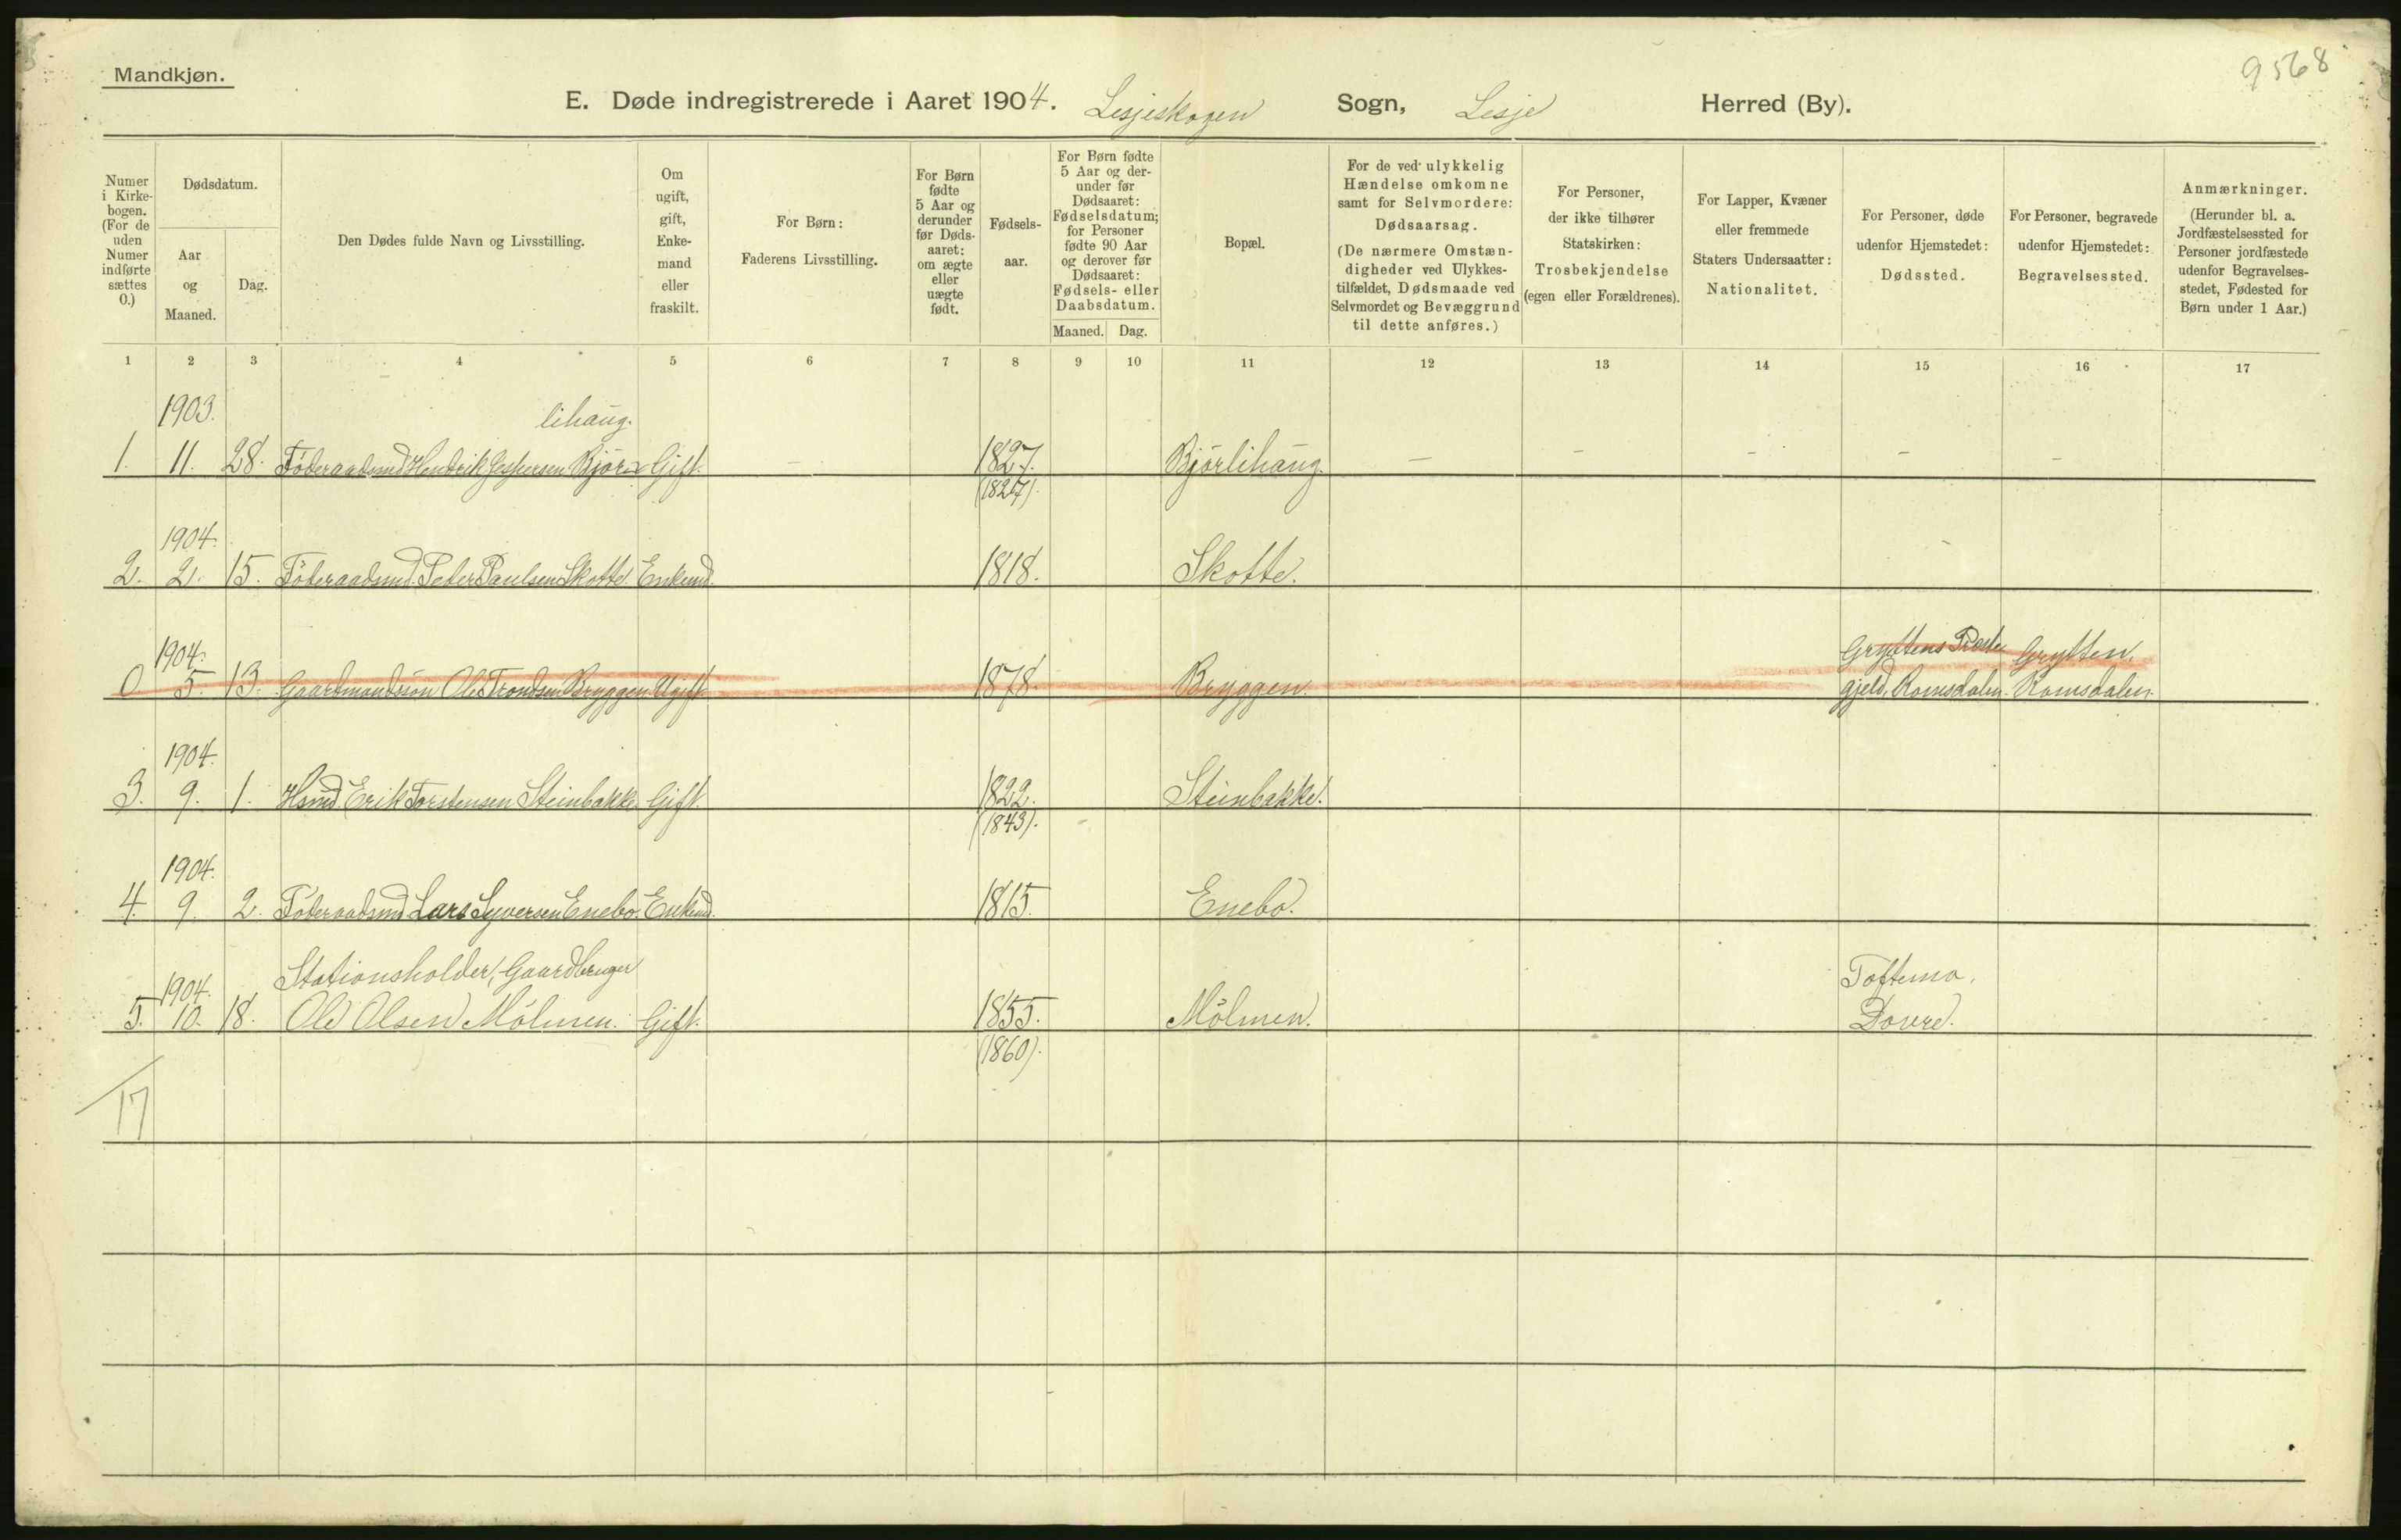 Mandkjøn.
9568
E. Døde indregistrerede i Aaret 1904. Lesjeskogen Sogn, Lesje Herred (By).
Numer i Kirke-bogen. (For de uden Numer indførte sættes 0.)
Dødsdatum.
Aar og Maaned.
Dag.
Den Dødes fulde Navn og Livsstilling.
Om ugift, gift, Enke-mand eller fraskilt.
For Børn: Faderens Livsstilling.
For Børn fødte 5 Aar og derunder før Døds-aaret: om ægte eller uægte født.
Fødsels-aar.
For Børn fødte 5 Aar og der-under før Dødsaaret: Fødselsdatum; for Personer fødte 90 Aar og derover før Dødsaaret: Fødsels- eller Daabsdatum.
Maaned. Dag.
Bopæl.
For de ved ulykkelig Hændelse omkomne samt for Selvmordere: Dødsaarsag. (De nærmere Omstæn-digheder ved Ulykkes-tilfældet, Dødsmaade ved Selvmordet og Bevæggrund til dette anføres.)
For Personer, der ikke tilhører Statskirken: Trosbekjendelse (egen eller Forældrenes).
For Lapper, Kvæner eller fremmede Staters Undersaatter: Nationalitet.
For Personer, døde udenfor Hjemstedet: Dødssted.
For Personer, begravede udenfor Hjemstedet: Begravelsessted.
Anmærkninger. (Herunder bl. a. Jordfæstelsessted for Personer jordfæstede udenfor Begravelses-stedet, Fødested for Børn under 1 Aar.)
1 2 3 4 5 6 7 8 9 10 11 12 13 14 15 16 17
1903. lihaug.
1. 11. 28. Föderaadsmd Hendrik Jespersen Bjør- Gift. – 1827. Bjørlihaug. – – – – –
(1827).
1904.
2. 2. 15. Föderaadsmd. Peter Paulsen Skotte. Enkemd. 1818. Skotte.
1904. Gryttens Præste Grytten,
0 5. 13. Gaardmandssön Ole Trondsen Bryggen Ugift. 1878. Bryggen. gjeld, Romsdalen. Romsdalen.
1904.
3. 9. 1. Hsmd. Erik Torstensen Steinbakke. Gift. 1822. Steinbakke.
(1843).
1904.
4. 9. 2. Föderaadsmd Lars Syversen Enebo. Enkemd. 1815. Enebo.
1904. Stationsholder, Gaardbruger Toftemo,
5. 10. 18. Ole Olsen Mölmen. Gift. 1855. Mölmen. Dovre.
(1860).
17